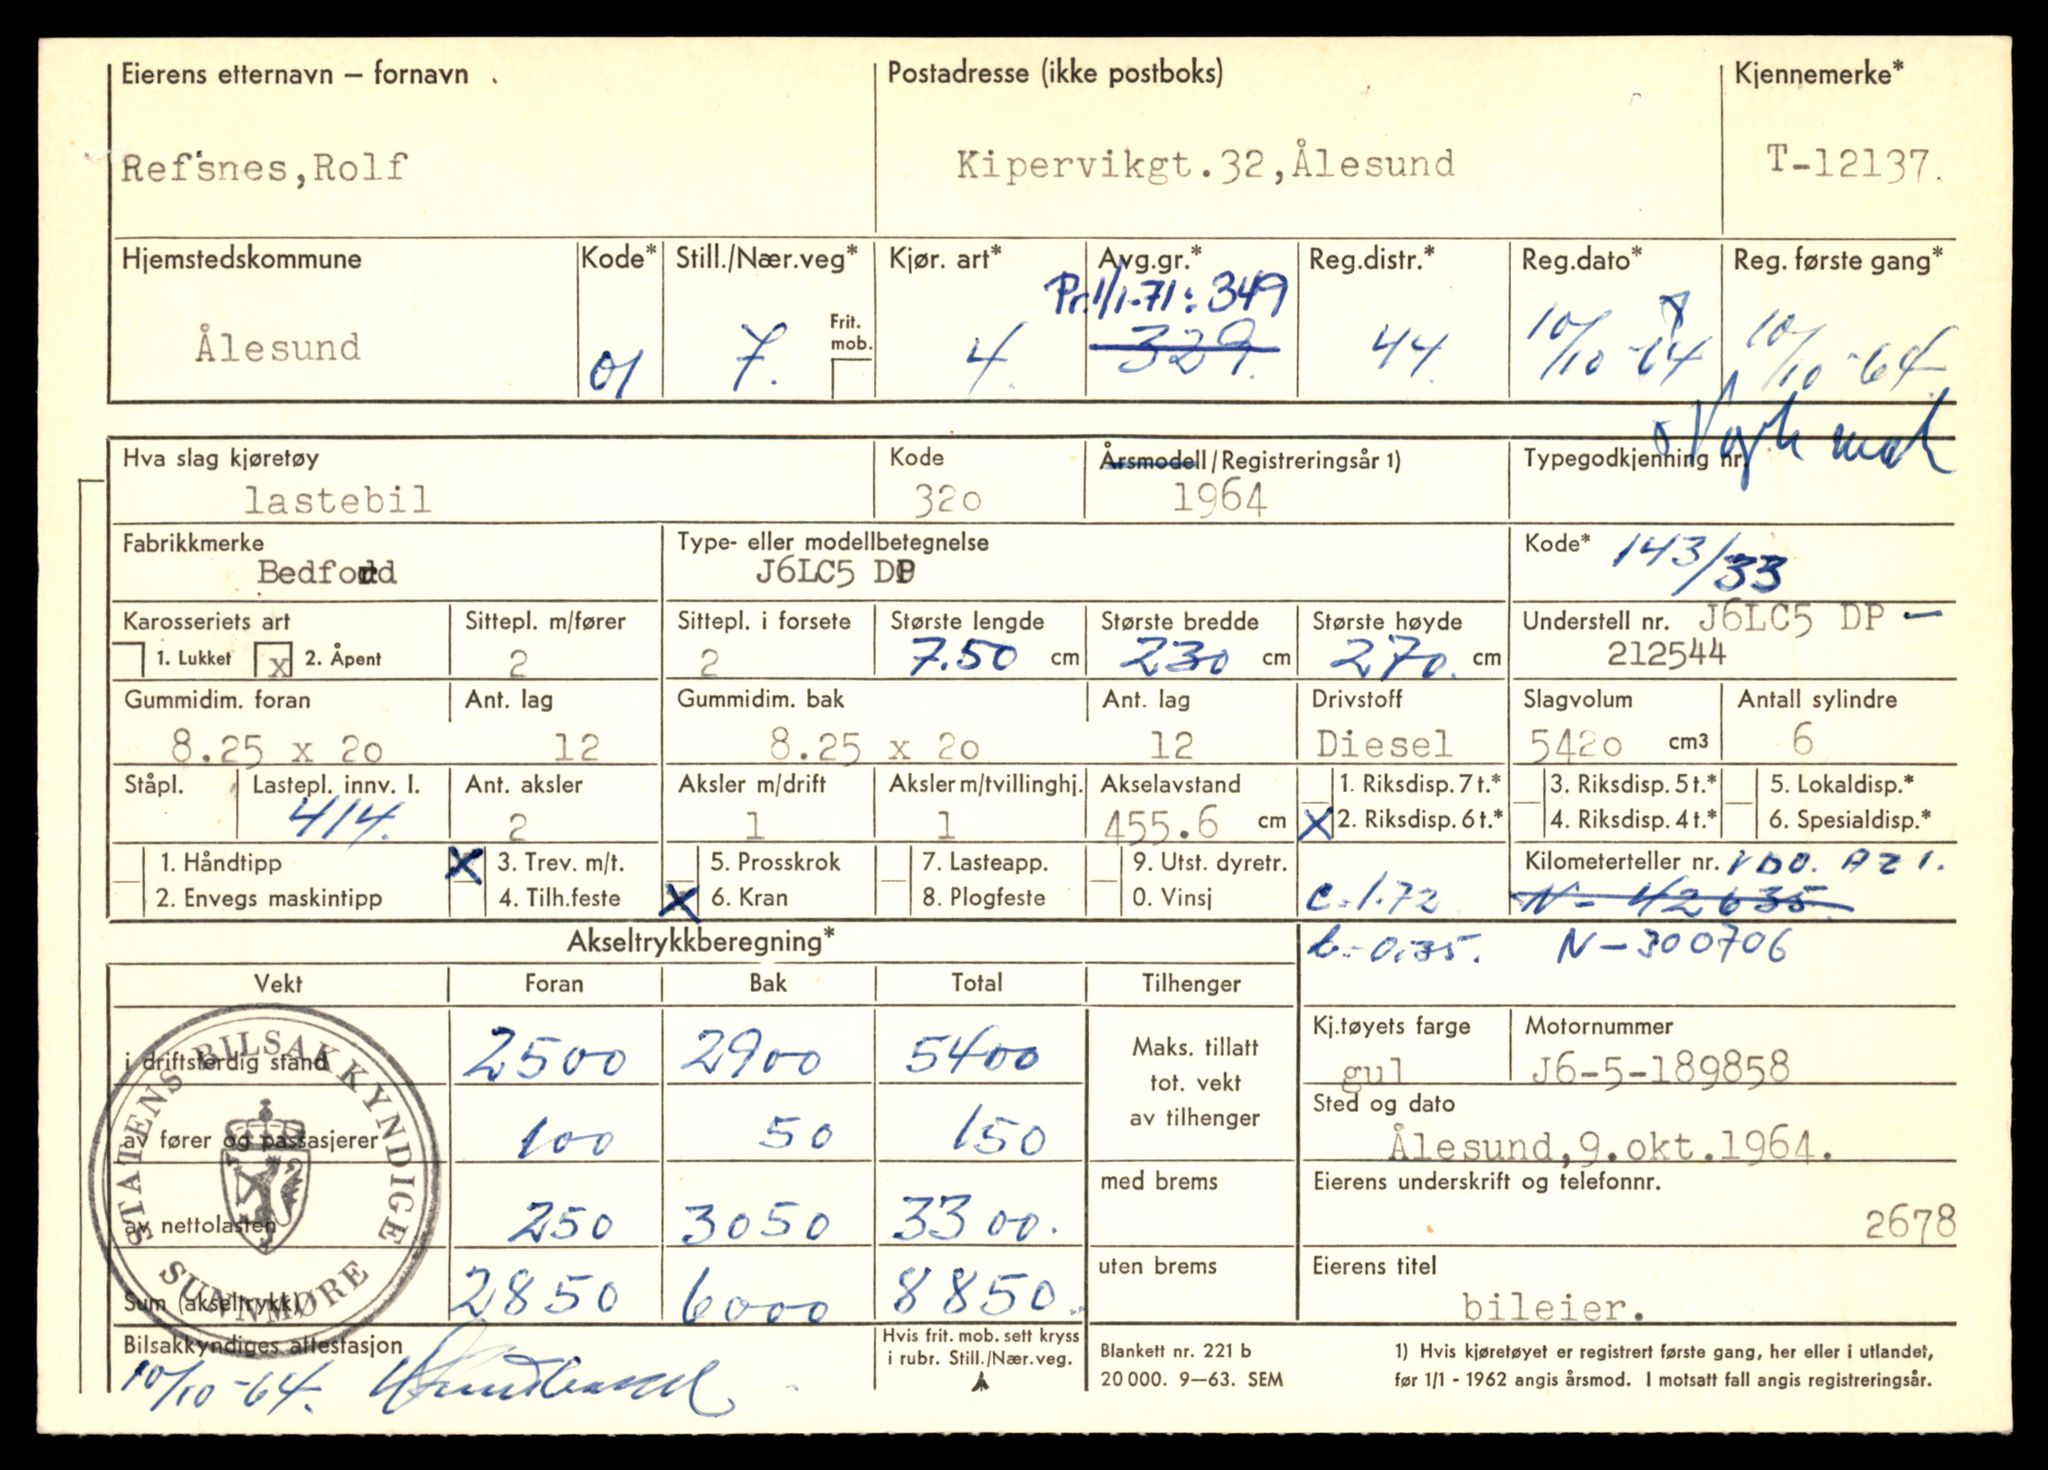 Eierens etternavn – fornavn
Postadresse (ikke postboks)
Kjennemerke*
Refsnes,Rolf
Kipervikgt.32,Ålesund
T-12137.
Hjemstedskommune
Kode*
Still./Nær.veg*
Kjør. art*
Avg.gr.*
Reg.distr.*
Reg.dato*
Reg. første gang*
Pr.1/1-71: 349
Ålesund
01
7.
Frit. mob.
4.
329.
44.
10/10-64
10/10-64
Hva slag kjøretøy
Kode
Årsmodell/Registreringsår 1)
Typegodkjenning nr.
lastebil
320
1964
Fabrikkmerke
Type- eller modellbetegnelse
Kode* 143/33
Bedford
J6LC5 DP
Karosseriets art
Sittepl. m/fører
Sittepl. i forsete
Største lengde
Største bredde
Største høyde
Understell nr. J6LC5 DP –
1. Lukket x 2. Åpent
2
2
7.50 cm
230 cm
270. cm
212544
Gummidim. foran
Ant. lag
Gummidim. bak
Ant. lag
Drivstoff
Slagvolum
Antall sylindre
8.25 x 20
12
8.25 x 20
12
Diesel
5420 cm3
6
Ståpl.
Lastepl. innv. l.
Ant. aksler
Aksler m/drift
Aksler m/tvillinghj.
Akselavstand
1. Riksdisp. 7 t.*
3. Riksdisp. 5 t.*
5. Lokaldisp.*
414.
2
1
1
455.6 cm
X 2. Riksdisp. 6 t.*
4. Riksdisp. 4 t.*
6. Spesialdisp.*
1. Håndtipp
X 3. Trev. m/t.
5. Prosskrok
7. Lasteapp.
9. Utst. dyretr.
Kilometerteller nr. VDO. AZ1.
2. Envegs maskintipp
4. Tilh.feste
X 6. Kran
8. Plogfeste
0. Vinsj
c.=1.72
N-42635
Akseltrykkberegning*
b.=0.35.
N-300706
Vekt
Foran
Bak
Total
Tilhenger
i driftsferdig stand
2500
2900
5400
Maks. tillatt
tot. vekt
av tilhenger
Kj.tøyets farge
Motornummer
gul
J6-5-189858
av fører og passasjerer
100
50
150
Sted og dato
Ålesund,9.okt.1964.
av nettolasten
250
3050
3300.
med brems
Eierens underskrift og telefonnr.
2678
Sum (akseltrykk)
2850
6000
8850
uten brems
Eierens titel
bileier.
STATENS BILSAKKYNDIGE
SUNNMØRE
Bilsakkyndiges attestasjon
10/10-64.
Hvis frit. mob. sett kryss
i rubr. Still./Nær.veg.
Blankett nr. 221 b
20 000. 9–63. SEM
1) Hvis kjøretøyet er registrert første gang, her eller i utlandet,
før 1/1 - 1962 angis årsmod. I motsatt fall angis registreringsår.